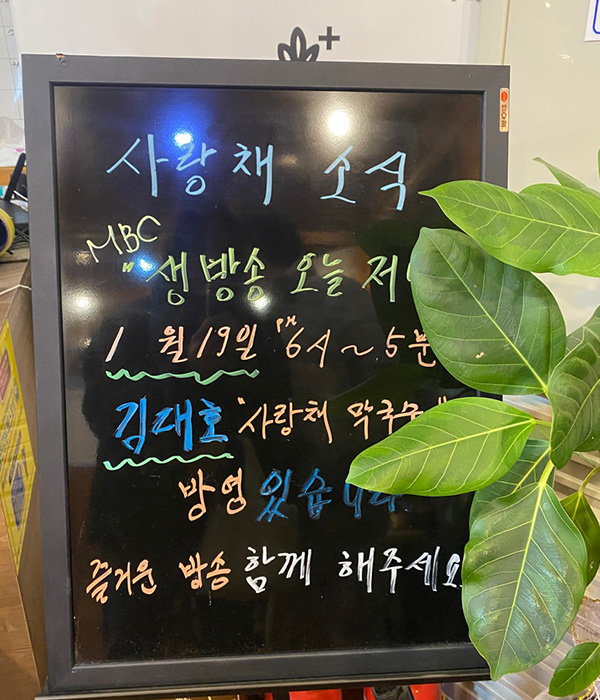 사랑채 소식
MBC
"생방송 오늘 저녁
1월 19일 PM 6시~5분
김대호 "사랑채 막국수"
방영 있습니다.
즐거운 방송 함께 해주세요